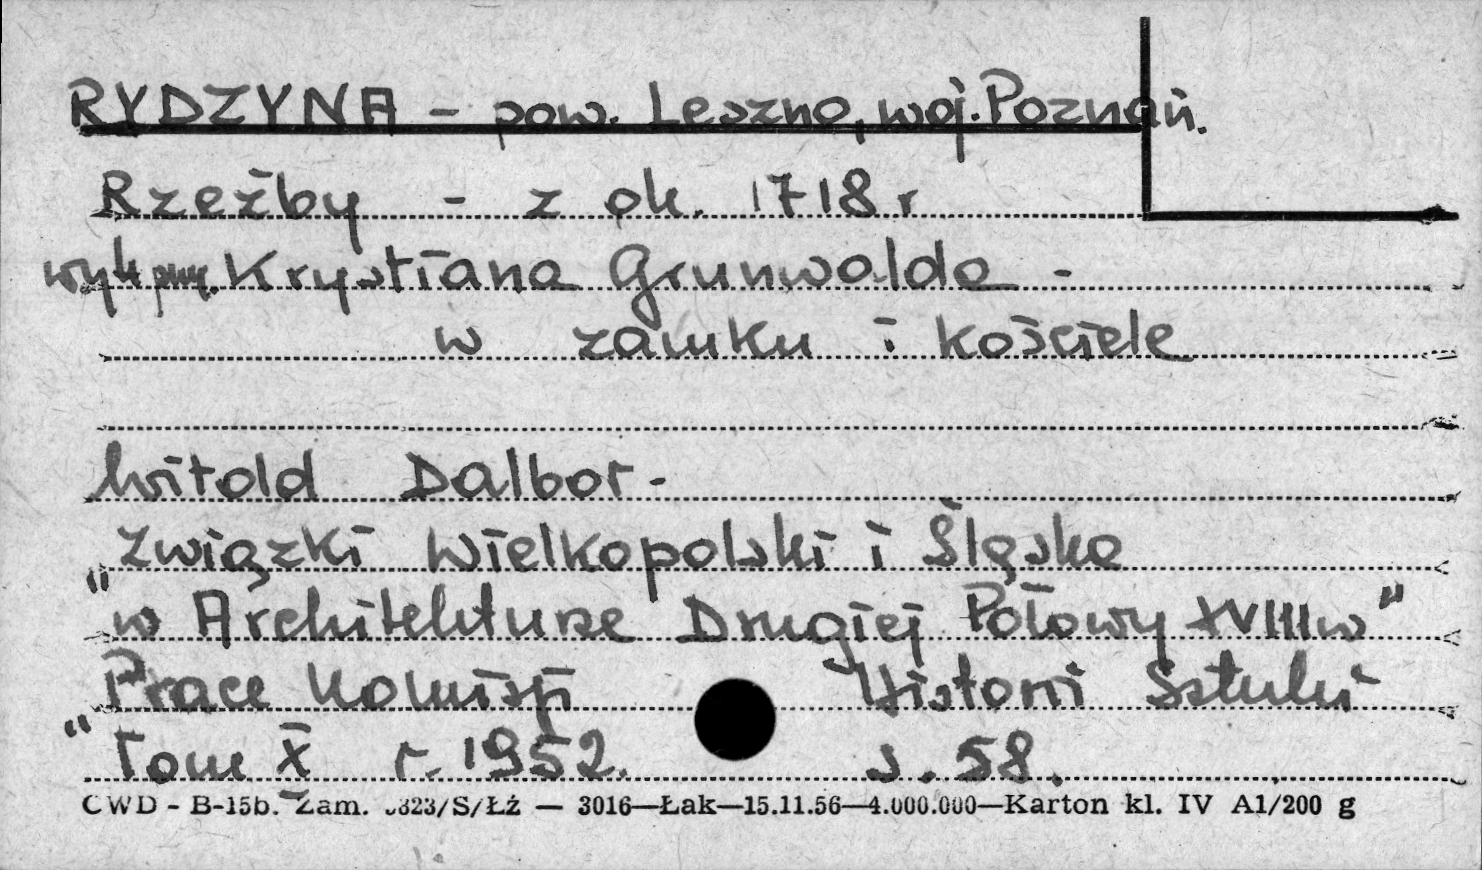 RYDZYNA - pow. Leszno, woj. Poznań.
Rzeźby - z ok. 1718 r
wyk przy. Krystiana Grunwalda -
w zamku i kościele
Witold Dalbor -
"Związki Wielkopolski i Śląska
w Architekturze Drugiej Połowy XVIII w"
"Prace Komisji Historii Sztuki -
Tom X r. 1952. s. 58.
CWD - B-15b. Zam. 5823/S/Łź — 3016—Łak—15.11.56—4.000.000—Karton kl. IV A1/200 g